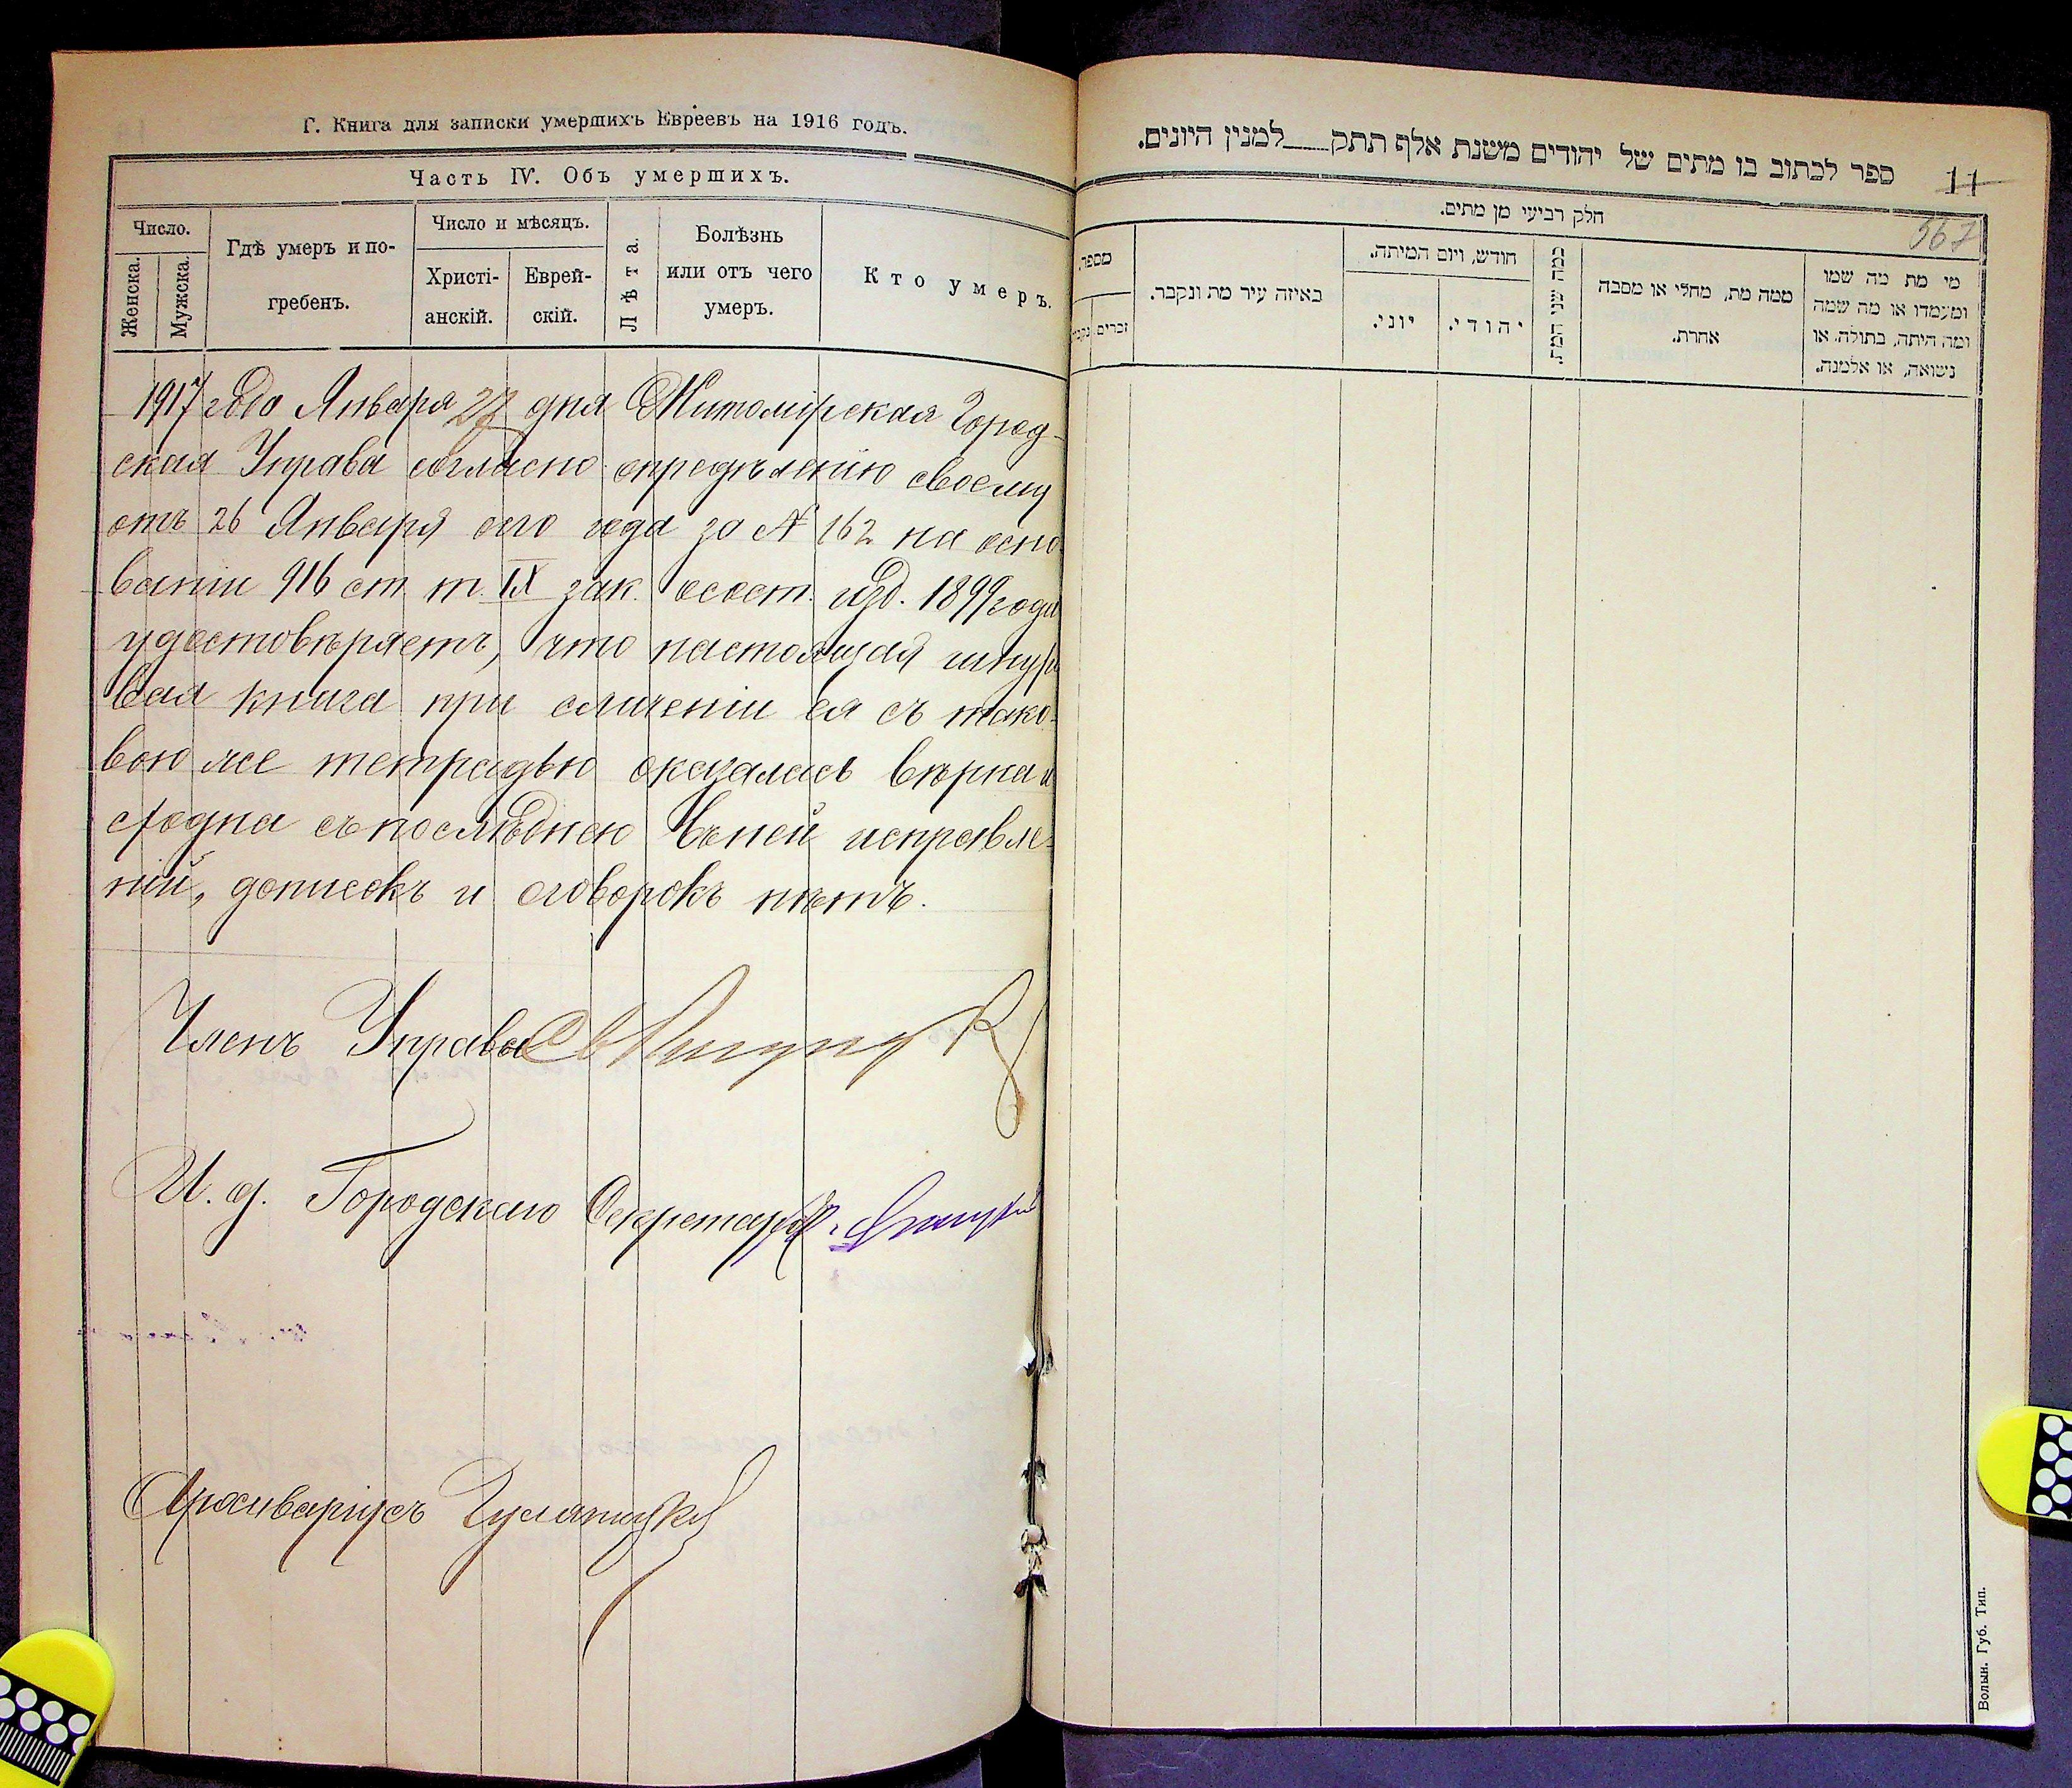 Г. Книга для записки умершихъ Евреевъ на 1916 годъ.
Часть IV. Объ умершихъ.
Число.
Женска.
Мужска.
Гдѣ умеръ и по-
гребенъ.
Число и мѣсяцъ.
Христі-
анскій.
Еврей-
скій.
Лѣта.
Болѣзнь
или отъ чего
умеръ.
Кто умеръ.
1917 года Января 27 дня Житомірская Город-
ская Управа согласно опредѣленію своему
отъ 26 Января сего года за № 162 на осно-
ваніи 916 ст. т. IX зак. о сост. изд. 1899 года
удостовѣряетъ, что настоящая шнуро
вая книга при сличеніи ея съ тако-
вою же тетрадью оказалась вѣрна и
сходна съ послѣднею въ ней исправле-
ній, дописокъ и оговорокъ нѣтъ.
Членъ Управы
И. д. Городского Секретаря
Архиваріусъ
ספר לכתוב בו מתים של יהודים משנת אלף תתק למנין היונים.
11
567
חלק רביעי מן מתים.
מספר.
זכרים
באיזה עיר מת ונקבר.
חודש, ויום המיתה.
יוני.
יהודי.
כמה שני המת.
ממה מת, מחלי או מסבה
אחרת.
מי מת מה שמו
ומעמדו או מה שמה
ומה היתה, בתולה, או
נשואה, או אלמנה.
Волын. Губ. Тип.